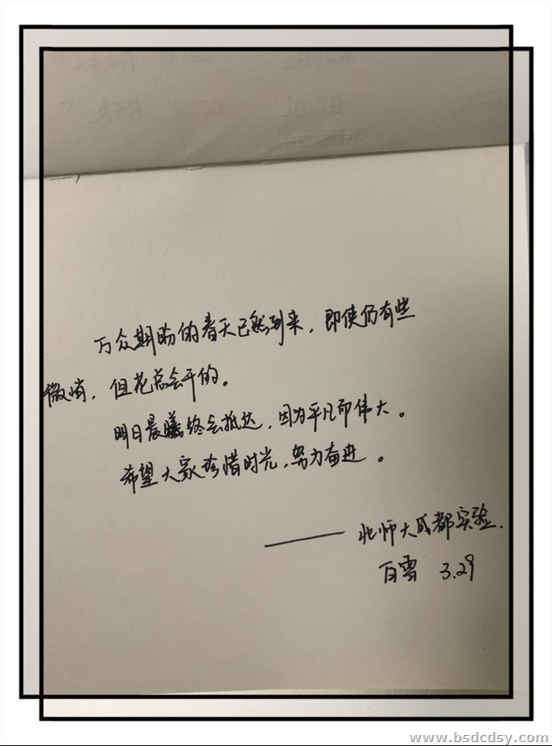 万众期盼的春天已然到来，即使仍有些
微峭，但花总会开的。
明日晨曦终会抵达，因为平凡而伟大。
希望大家珍惜时光，努力奋进。
——北师大成都实验.
白雪 3.29
www.bsdcdsy.com